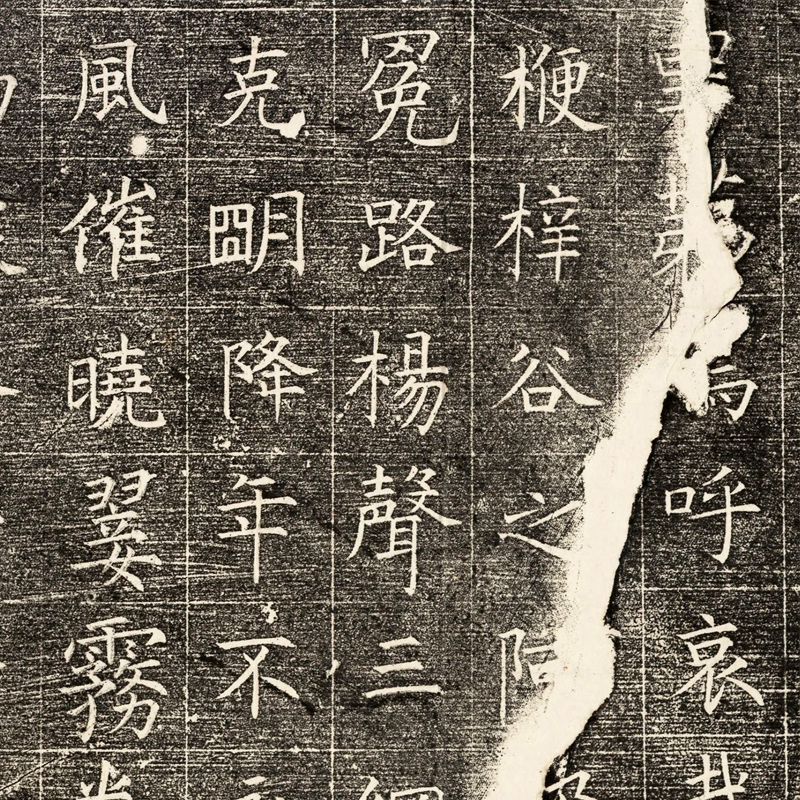 嗚呼哀哉
楩梓谷之
冤路楊聲三綱
克明降年不
風催曉翣霧